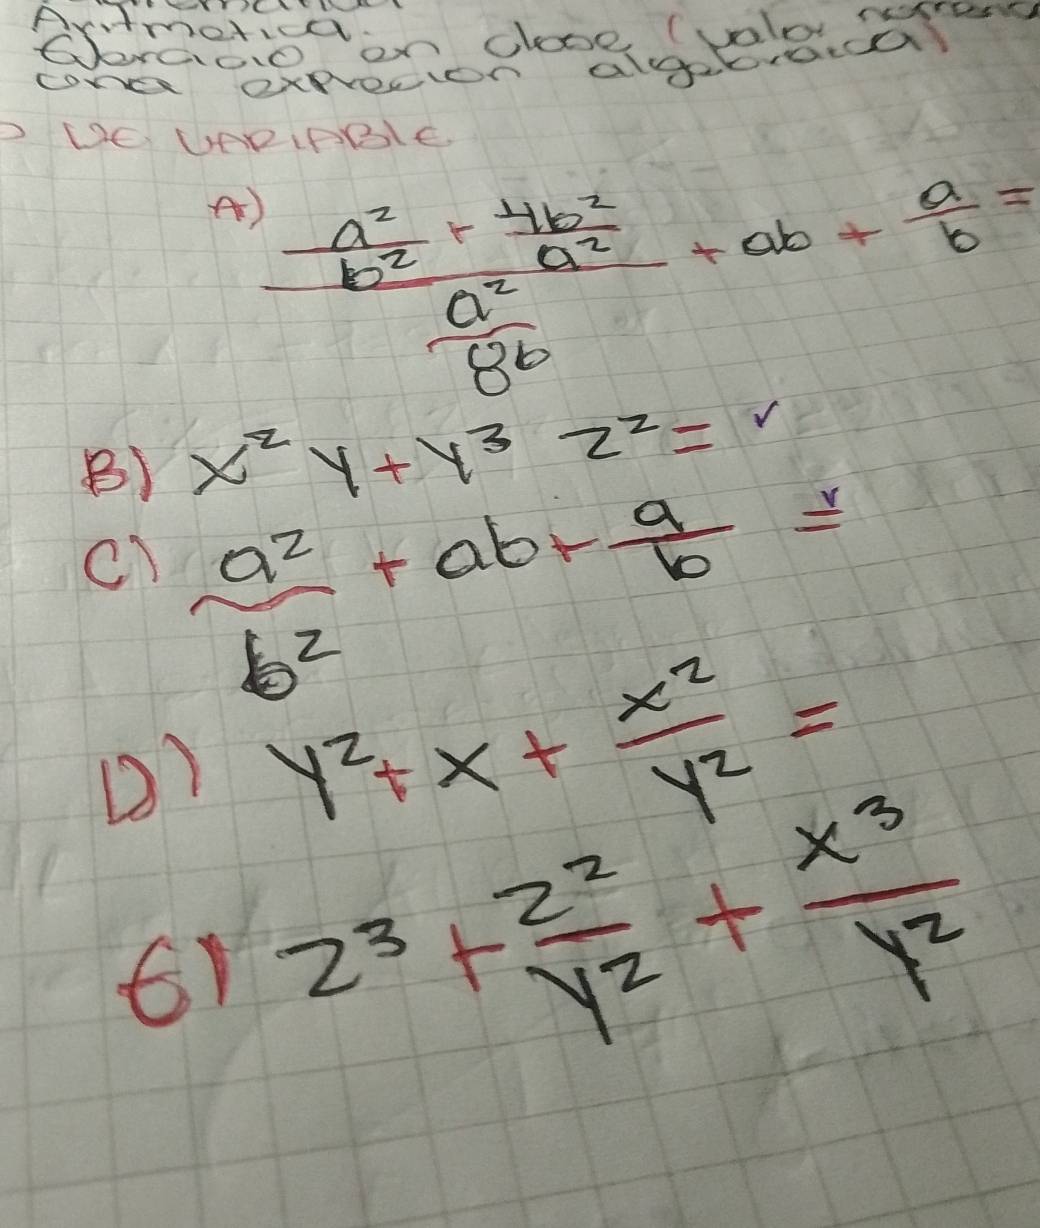 Aritmetica.
en clase (valor
una exprecion algebraica)
DE VARIABLE
A) \frac{\frac{a²}{b²} + \frac{4b²}{a²}}{\frac{a²}{8b}} + ab + \frac{a}{b} =
B) x² y + y³ z² = ✓
C) \frac{a²}{b²} + ab + \frac{a}{b} = ✓
D) y² + x + \frac{x²}{y²} =
6) z³ + \frac{z²}{y²} + \frac{x³}{y²}